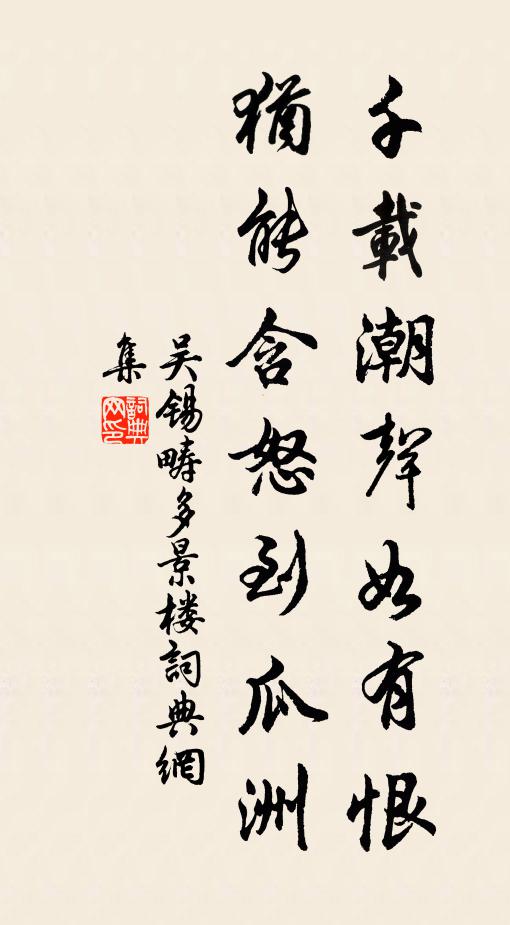 千載潮聲如有恨
猶能含怒到瓜洲
吴锡畴多景楼詞典網
集
詞典
网印